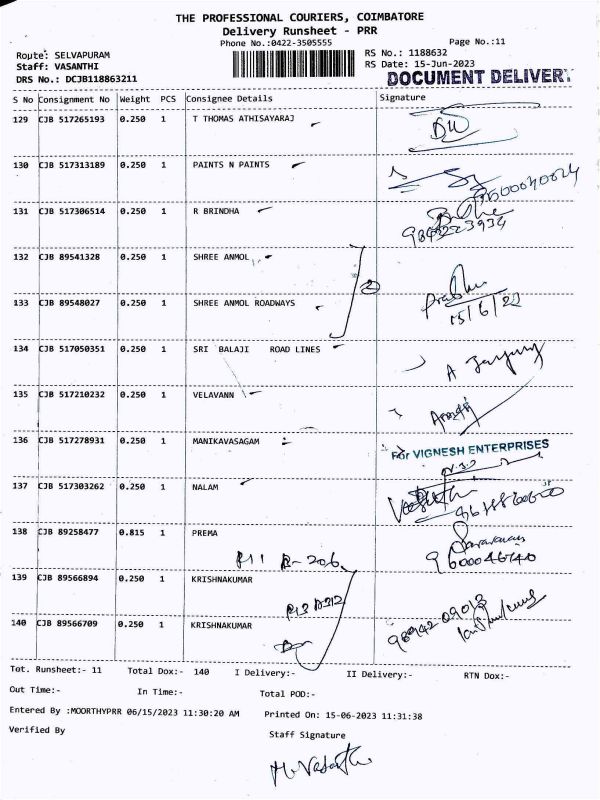 THE PROFESSIONAL COURIERS, COIMBATORE
Delivery Runsheet - PRR
Phone No.:0422-3505555
Page No.:11
Route: SELVAPURAM
RS No.: 1188632
Staff: VASANTHI
RS Date: 15-Jun-2023
DRS No.: DCJB118863211
DOCUMENT DELIVERY
S No Consignment No Weight PCS Consignee Details Signature
129 CJB 517265193 0.250 1 T THOMAS ATHISAYARAJ
130 CJB 517313189 0.250 1 PAINTS N PAINTS
131 CJB 517306514 0.250 1 R BRINDHA
9843223934
132 CJB 89541328 0.250 1 SHREE ANMOL
133 CJB 89548027 0.250 1 SHREE ANMOL ROADWAYS
15/6/23
134 CJB 517050351 0.250 1 SRI BALAJI ROAD LINES
135 CJB 517210232 0.250 1 VELAVANN
136 CJB 517278931 0.250 1 MANIKAVASAGAM
For VIGNESH ENTERPRISES
137 CJB 517303262 0.250 1 NALAM
138 CJB 89258477 0.815 1 PREMA
9600046740
139 CJB 89566894 0.250 1 KRISHNAKUMAR
98942 09013
140 CJB 89566709 0.250 1 KRISHNAKUMAR
Tot. Runsheet:- 11 Total Dox:- 140 I Delivery:- II Delivery:- RTN Dox:-
Out Time:- In Time:- Total POD:-
Entered By :MOORTHYPRR 06/15/2023 11:30:20 AM Printed On: 15-06-2023 11:31:38
Verified By Staff Signature
M. Vasanthi